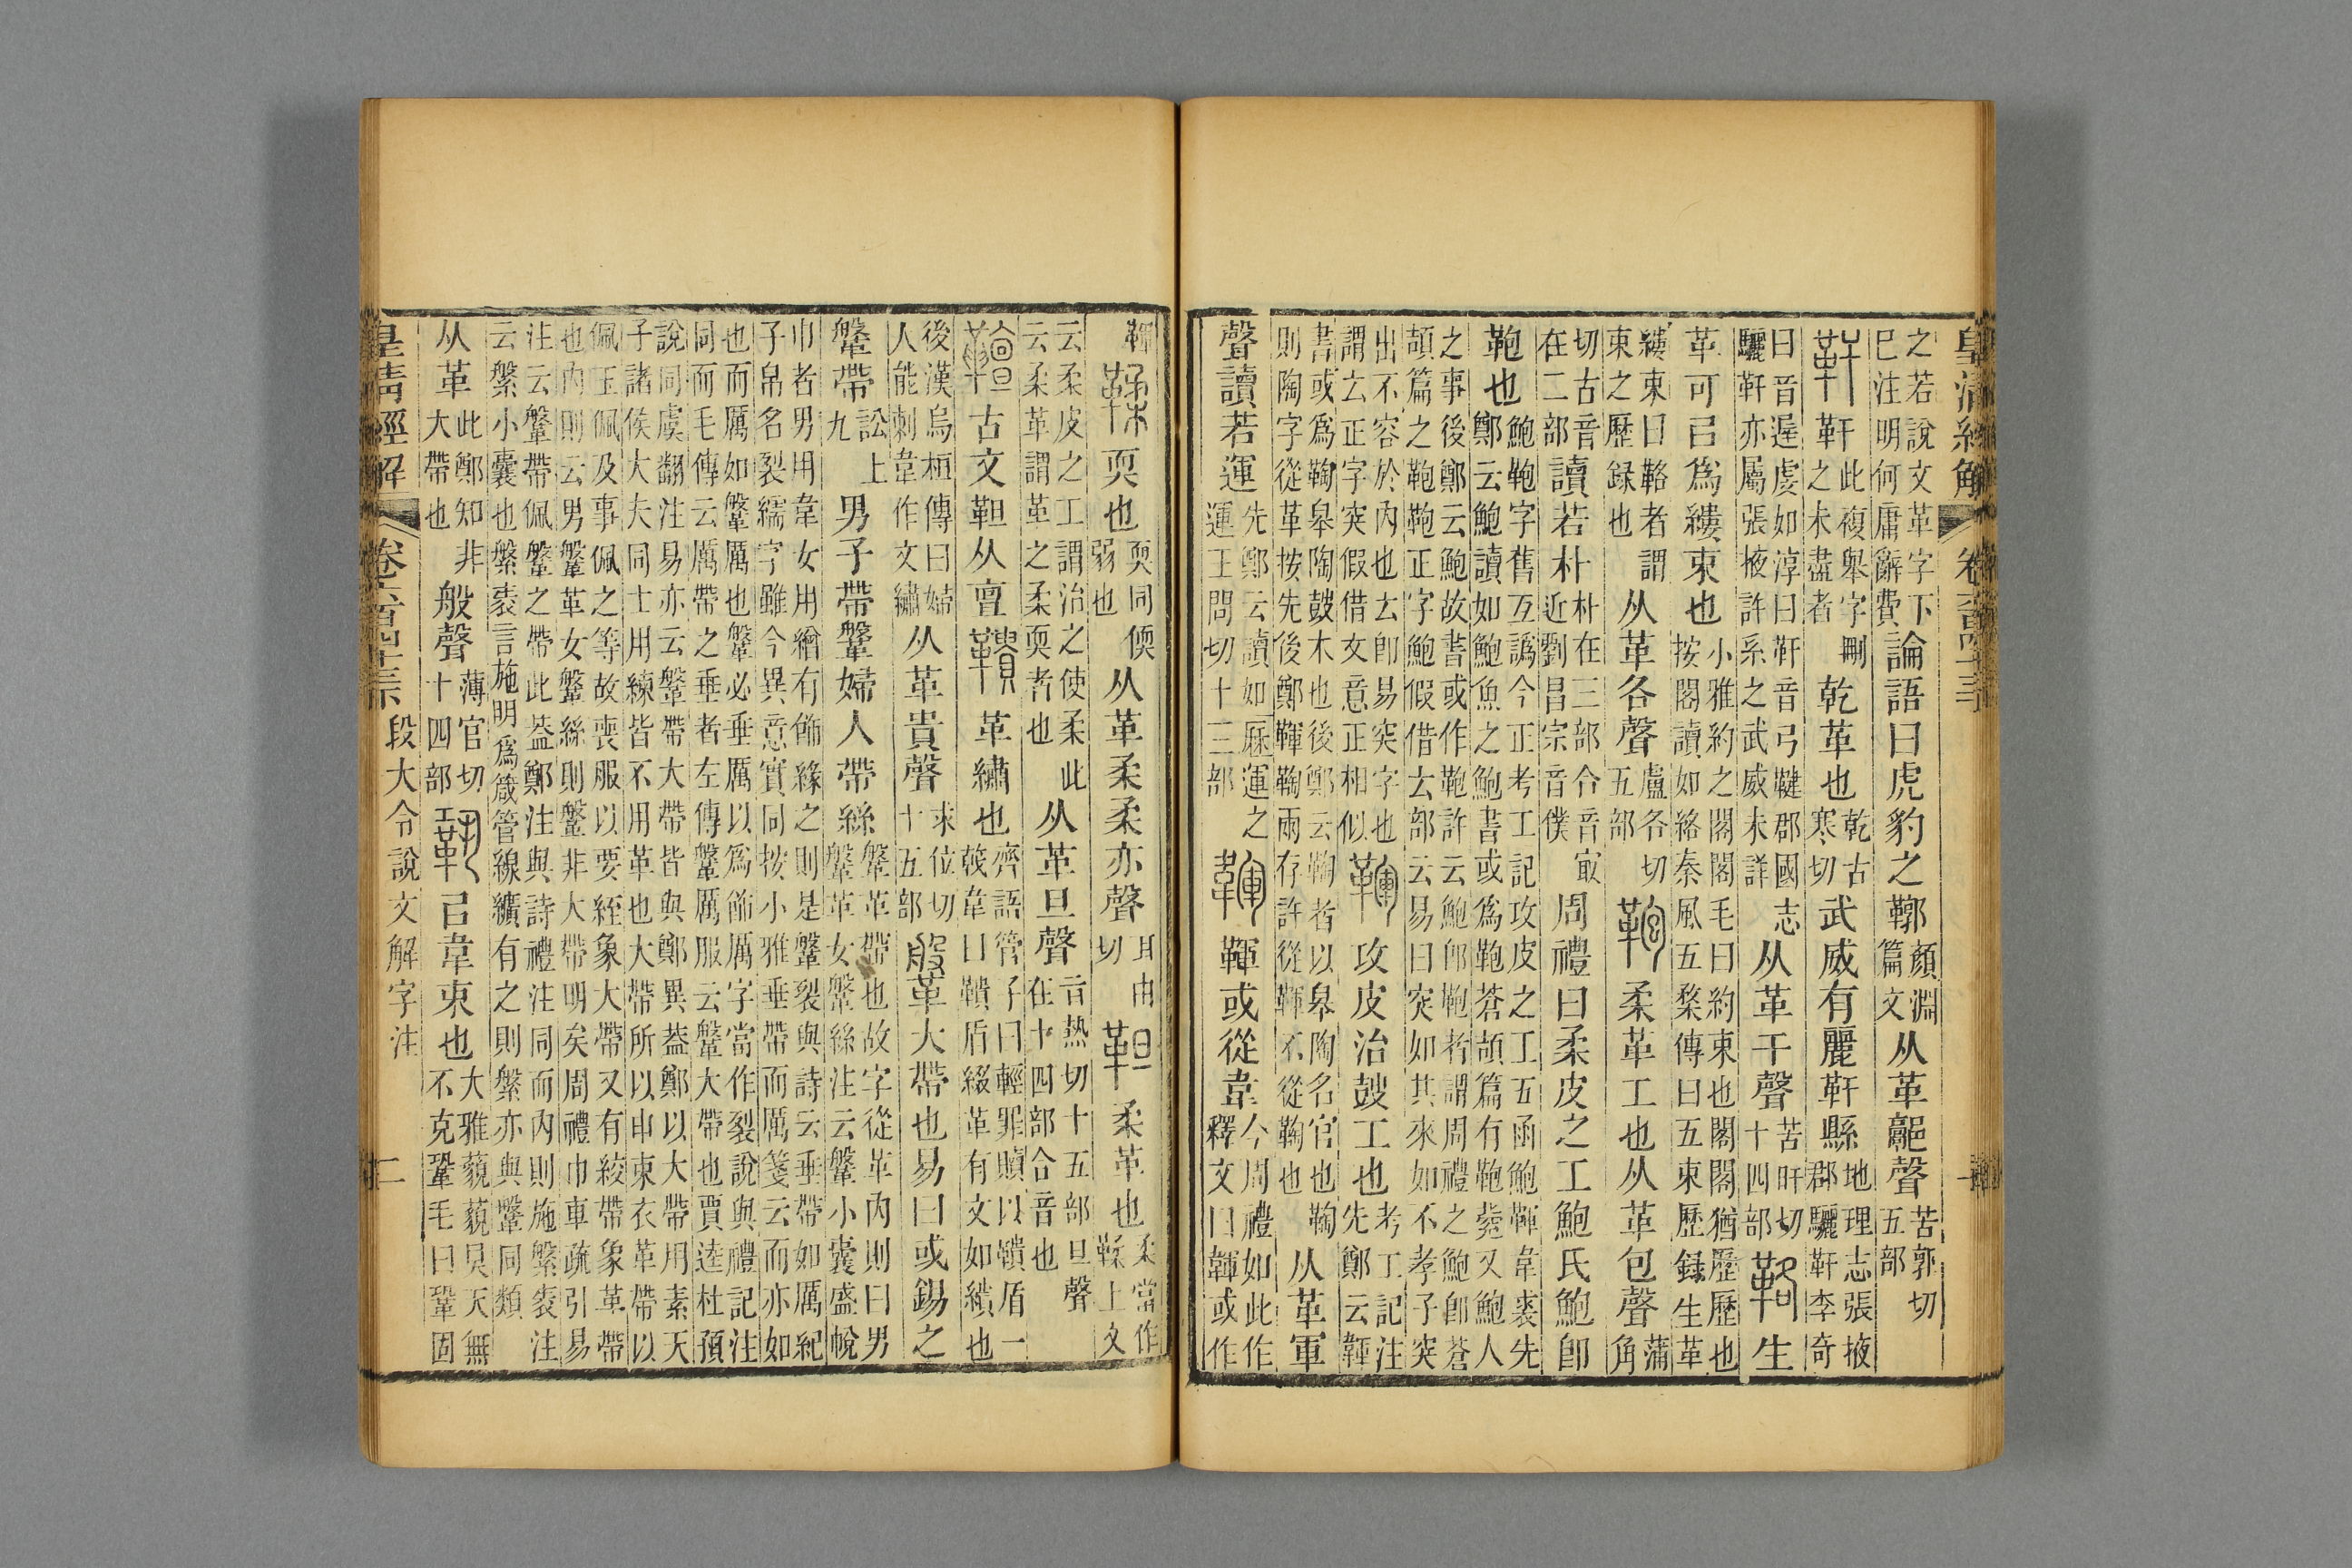 皇清經解 卷六百四十三 一
之若說文革字下巳注明何庸辭費論語曰虎豹之鞹顏淵篇文从革𩫖聲苦郭切五部
靬靬此複舉字刪之未盡者乾革也乾古寒切武威有麗靬縣地理志張掖郡驪靬李奇
曰音遟虔如淳曰靬音弓鞬郡國志驪靬亦屬張掖許系之武威未詳从革干聲苦旰切十四部𩊚生
革可㠯爲縷束也小雅約之閣閣毛曰約束也閣閣猶歷歷也按閣讀如絡秦風五楘傳曰五束歷録生革
縷束曰𩊚者謂束之歷録也从革各聲盧各切五部鞄柔革工也从革包聲蒲角
切古音在二部讀若朴朴在三部合音㝡近劉昌宗音僕周禮曰柔皮之工鮑氏鮑卽
鞄也鮑鞄字舊互譌今正考工記攻皮之工五函鮑韗韋裘先鄭云鮑讀如鮑魚之鮑書或爲鞄蒼頡篇有鞄䒳又鮑人
之事後鄭云鮑故書或作鞄許云鮑卽鞄者謂周禮之鮑卽蒼頡篇之鞄鞄正字鮑假借𠫓部云易曰突如其來如不孝子突
出不容於內也𠫓卽易突字也謂𠫓正字突假借文意正相似韗攻皮治鼓工也考工記注先鄭云韗
書或爲鞠皋陶鼓木也後鄭云鞠者以皋陶名官也鞠則陶字從革按先後鄭韗鞠兩存許從韗不從鞠也从革軍
聲讀若運先鄭云讀如歷運之運王問切十三部韗韗或從韋今周禮如此作釋文曰韗或作
韗鞣耎也耎同偄弱也从革柔柔亦聲耳由切靼柔革也柔當作鞣上文
云柔皮之工謂治之使柔此云柔革謂革之柔耎者也从革旦聲旨熱切十五部旦聲在十四部合音也
古文靼从亶鞼革繡也齊語管子曰輕罪贖以鞼盾一㦸韋曰鞼盾綴革有文如繢也
後漢烏桓傳曰婦人能刺韋作文繡从革貴聲求位切十五部鞶大帶也易曰或錫之
鞶帶訟上九男子帶鞶婦人帶絲鞶革帶也故字從革內則曰男鞶革女鞶絲注云鞶小囊盛帨
巾者男用韋女用繒有飾緣之則是鞶裂與詩云垂帶如厲紀子帛名裂繻字雖今異意實同按小雅垂帶而厲箋云而亦如
也而厲如鞶厲也鞶必垂厲以爲飾厲字當作裂說與禮記注同而毛傳云厲帶之垂者左傳鞶厲服云鞶大帶也賈逵杜預
說同虞翻注易亦云鞶帶大帶皆與鄭異葢鄭以大帶用素天子諸侯大夫同士用練皆不用革也大帶所以申束衣革帶以
佩玉佩及事佩之等故喪服以要絰象大帶又有絞帶象革帶也內則云男鞶革女鞶絲則鞶非大帶明矣周禮巾車疏引易
注云鞶帶佩鞶之帶此葢鄭注與詩禮注同而內則施縏袠注云縏小囊也縏袠言施明爲箴管線纊有之則縏亦與鞶同類
从革此鄭知非大帶也般聲薄官切十四部鞏㠯韋束也大雅藐藐昊天無不克鞏毛曰鞏固
皇清經解 卷六百四十三 段大令說文解字注 二